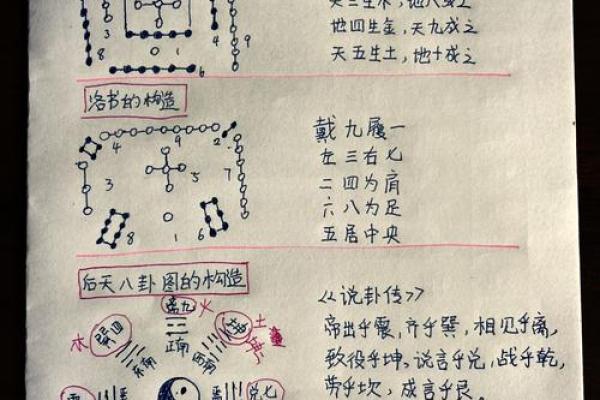 天三生木，地八成之
地四生金，天九成之
天五生土，地十成之
3 4 9
8 1
6
洛书的构造
4 9 2
3 5 7
8 1 6
戴九履一
左三右七
二四为肩
六八为足
五居中央
后天八卦图的构造
离九 火
木 巽四 土
东南 正南 西南
兑七
《说卦传》
帝出乎震，齐乎巽，相见乎离，
致役乎坤，说言乎兑，战乎乾，
劳乎坎，成言乎艮。